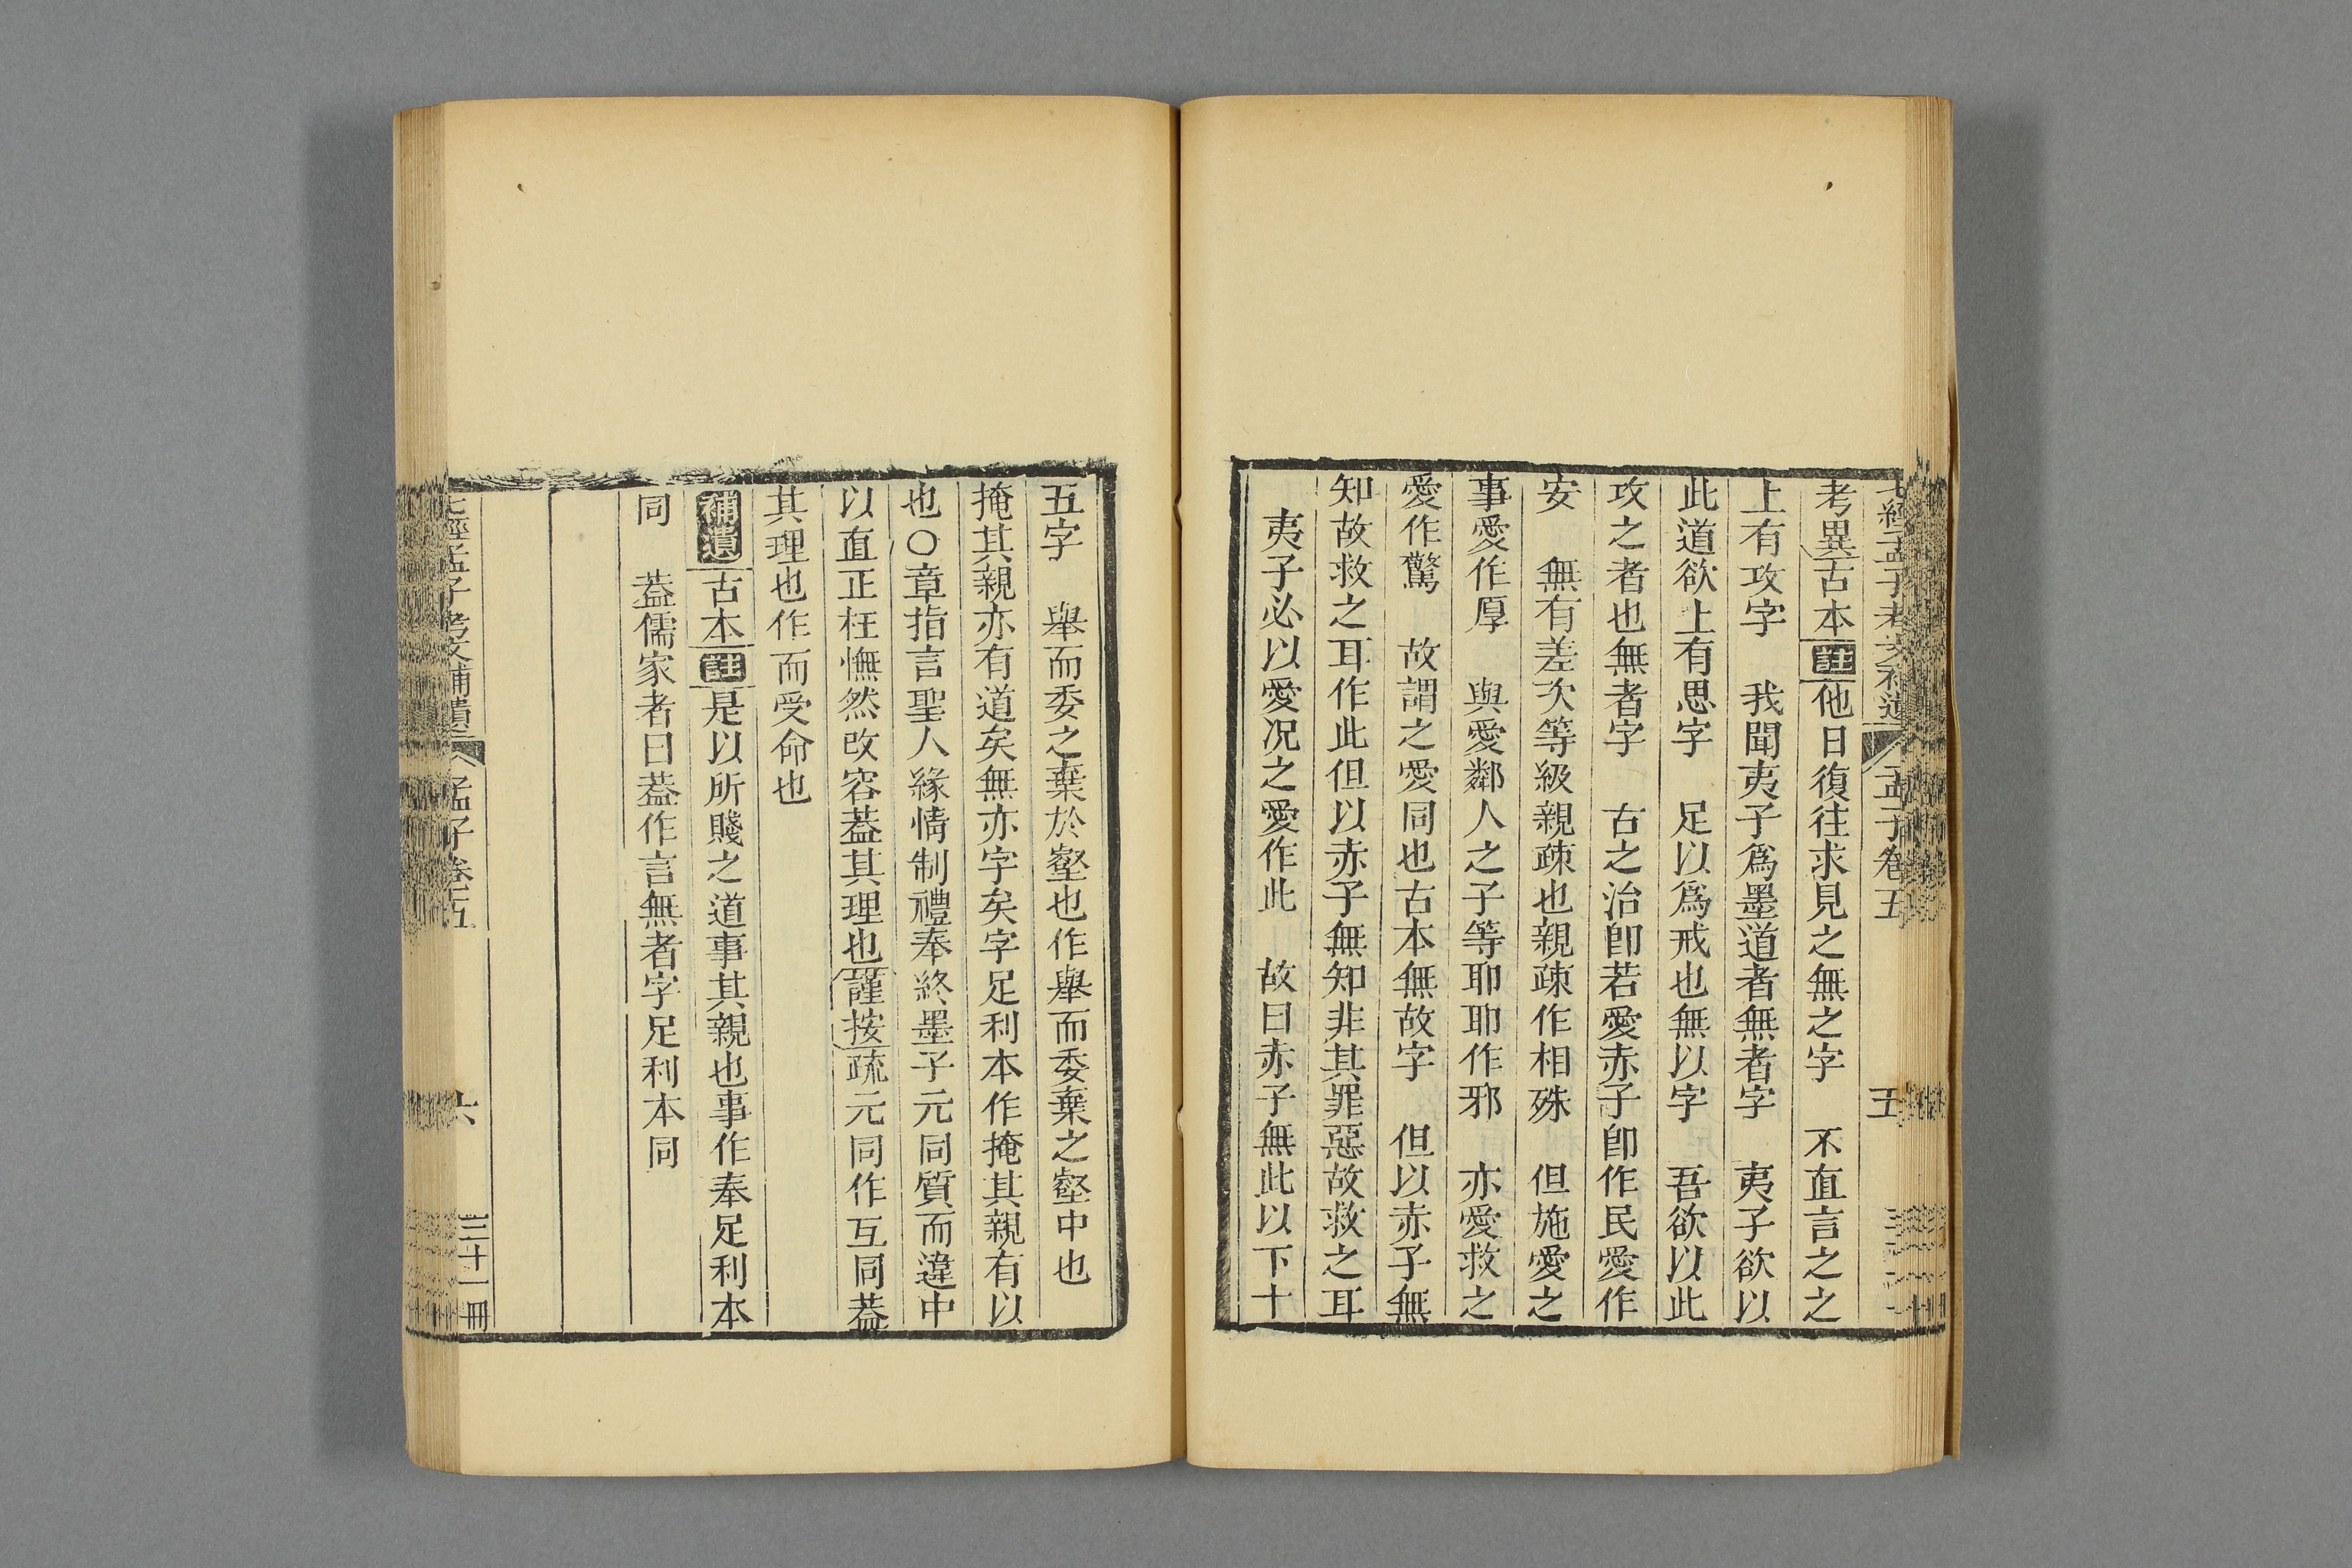 七經孟子考文補遺 孟子卷五 五
考異古本註他日復往求見之無之字　不直言之之
上有攻字　我聞夷子爲墨道者無者字　夷子欲以
此道欲上有思字　足以爲戒也無以字　吾欲以此
攻之者也無者字　古之治卽若愛赤子卽作民愛作
安　無有差次等級親疎也親疎作相殊　但施愛之
事愛作厚　與愛鄰人之子等耶耶作邪　亦愛救之
愛作驚　故謂之愛同也古本無故字　但以赤子無
知故救之耳作此但以赤子無知非其罪惡故救之耳
夷子必以愛况之愛作此　故曰赤子無此以下十
五字　舉而委之棄於壑也作舉而委棄之壑中也
掩其親亦有道矣無亦字矣字足利本作掩其親有以
也○章指言聖人緣情制禮奉終墨子元同質而違中
以直正枉憮然改容蓋其理也謹按疏元同作互同蓋
其理也作而受命也
補遺古本註是以所賤之道事其親也事作奉足利本
同　蓋儒家者曰蓋作言無者字足利本同
七經孟子考文補遺 孟子卷五 六 三十一冊